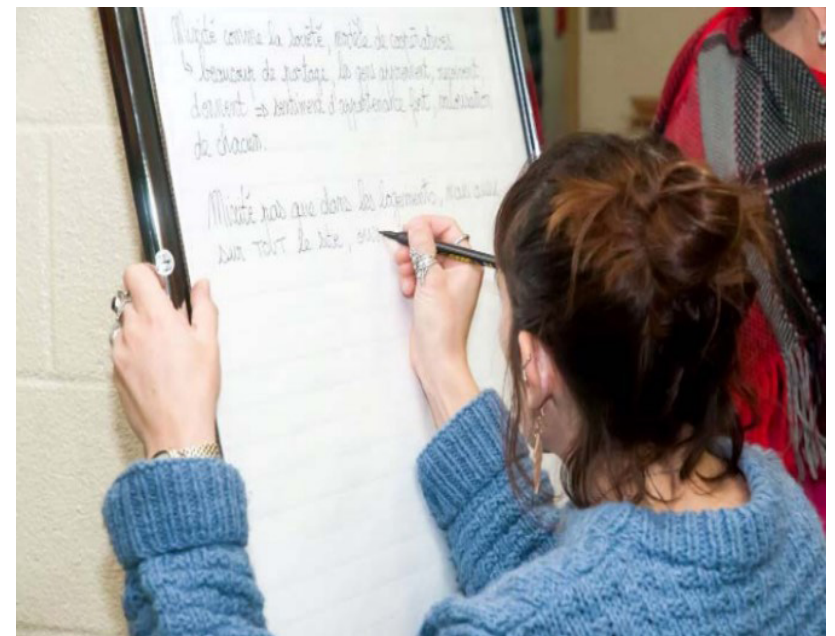 Mixité comme la société, modèle de coopératives
↳ beaucoup de partage, les gens apprennent, reçoivent,
donnent → sentiment d'appartenance fort, valorisation
de chacun.
Mixité pas que dans les logements, mais aussi
sur TOUT le site,